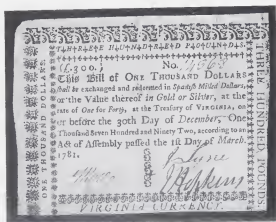 THREE HUNDRED POUNDS.
(£.300.) No.
This Bill of ONE THOUSAND DOLLARS
shall be exchanged and redeemed in Spanish Milled Dollars,
or the Value thereof in Gold or Silver, at the
rate of One for Forty, at the Treasury of VIRGINIA, on
or before the 30th Day of December, One
Thousand Seven Hundred and Ninety Two, according to an
Act of Assembly passed the 1st Day of March
1781.
Hopkins
VIRGINIA CURRENCY.
THREE HUNDRED POUNDS.